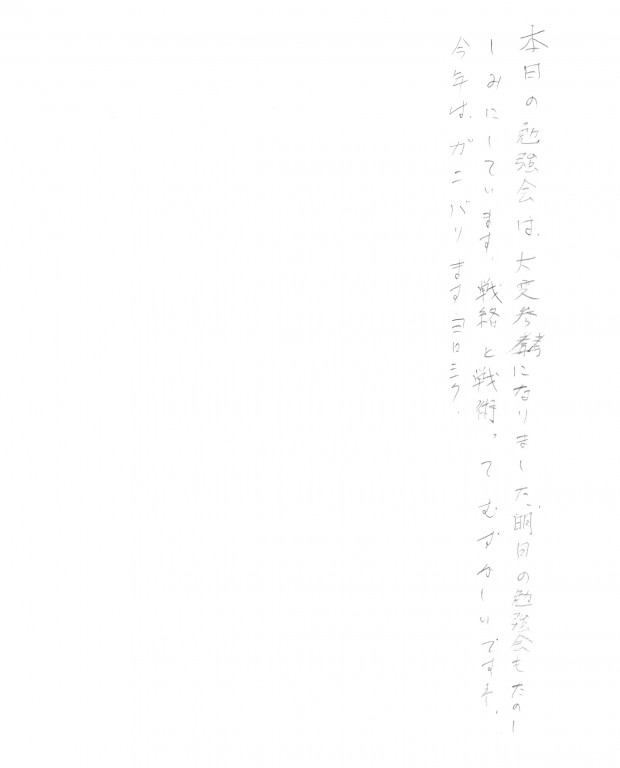 本日の勉強会は、大変参考になりました。明日の勉強会もたのし
しみにしています。戦略と戦術。てむずかしいですネ。
今年は、ガンバリますヨロシク.